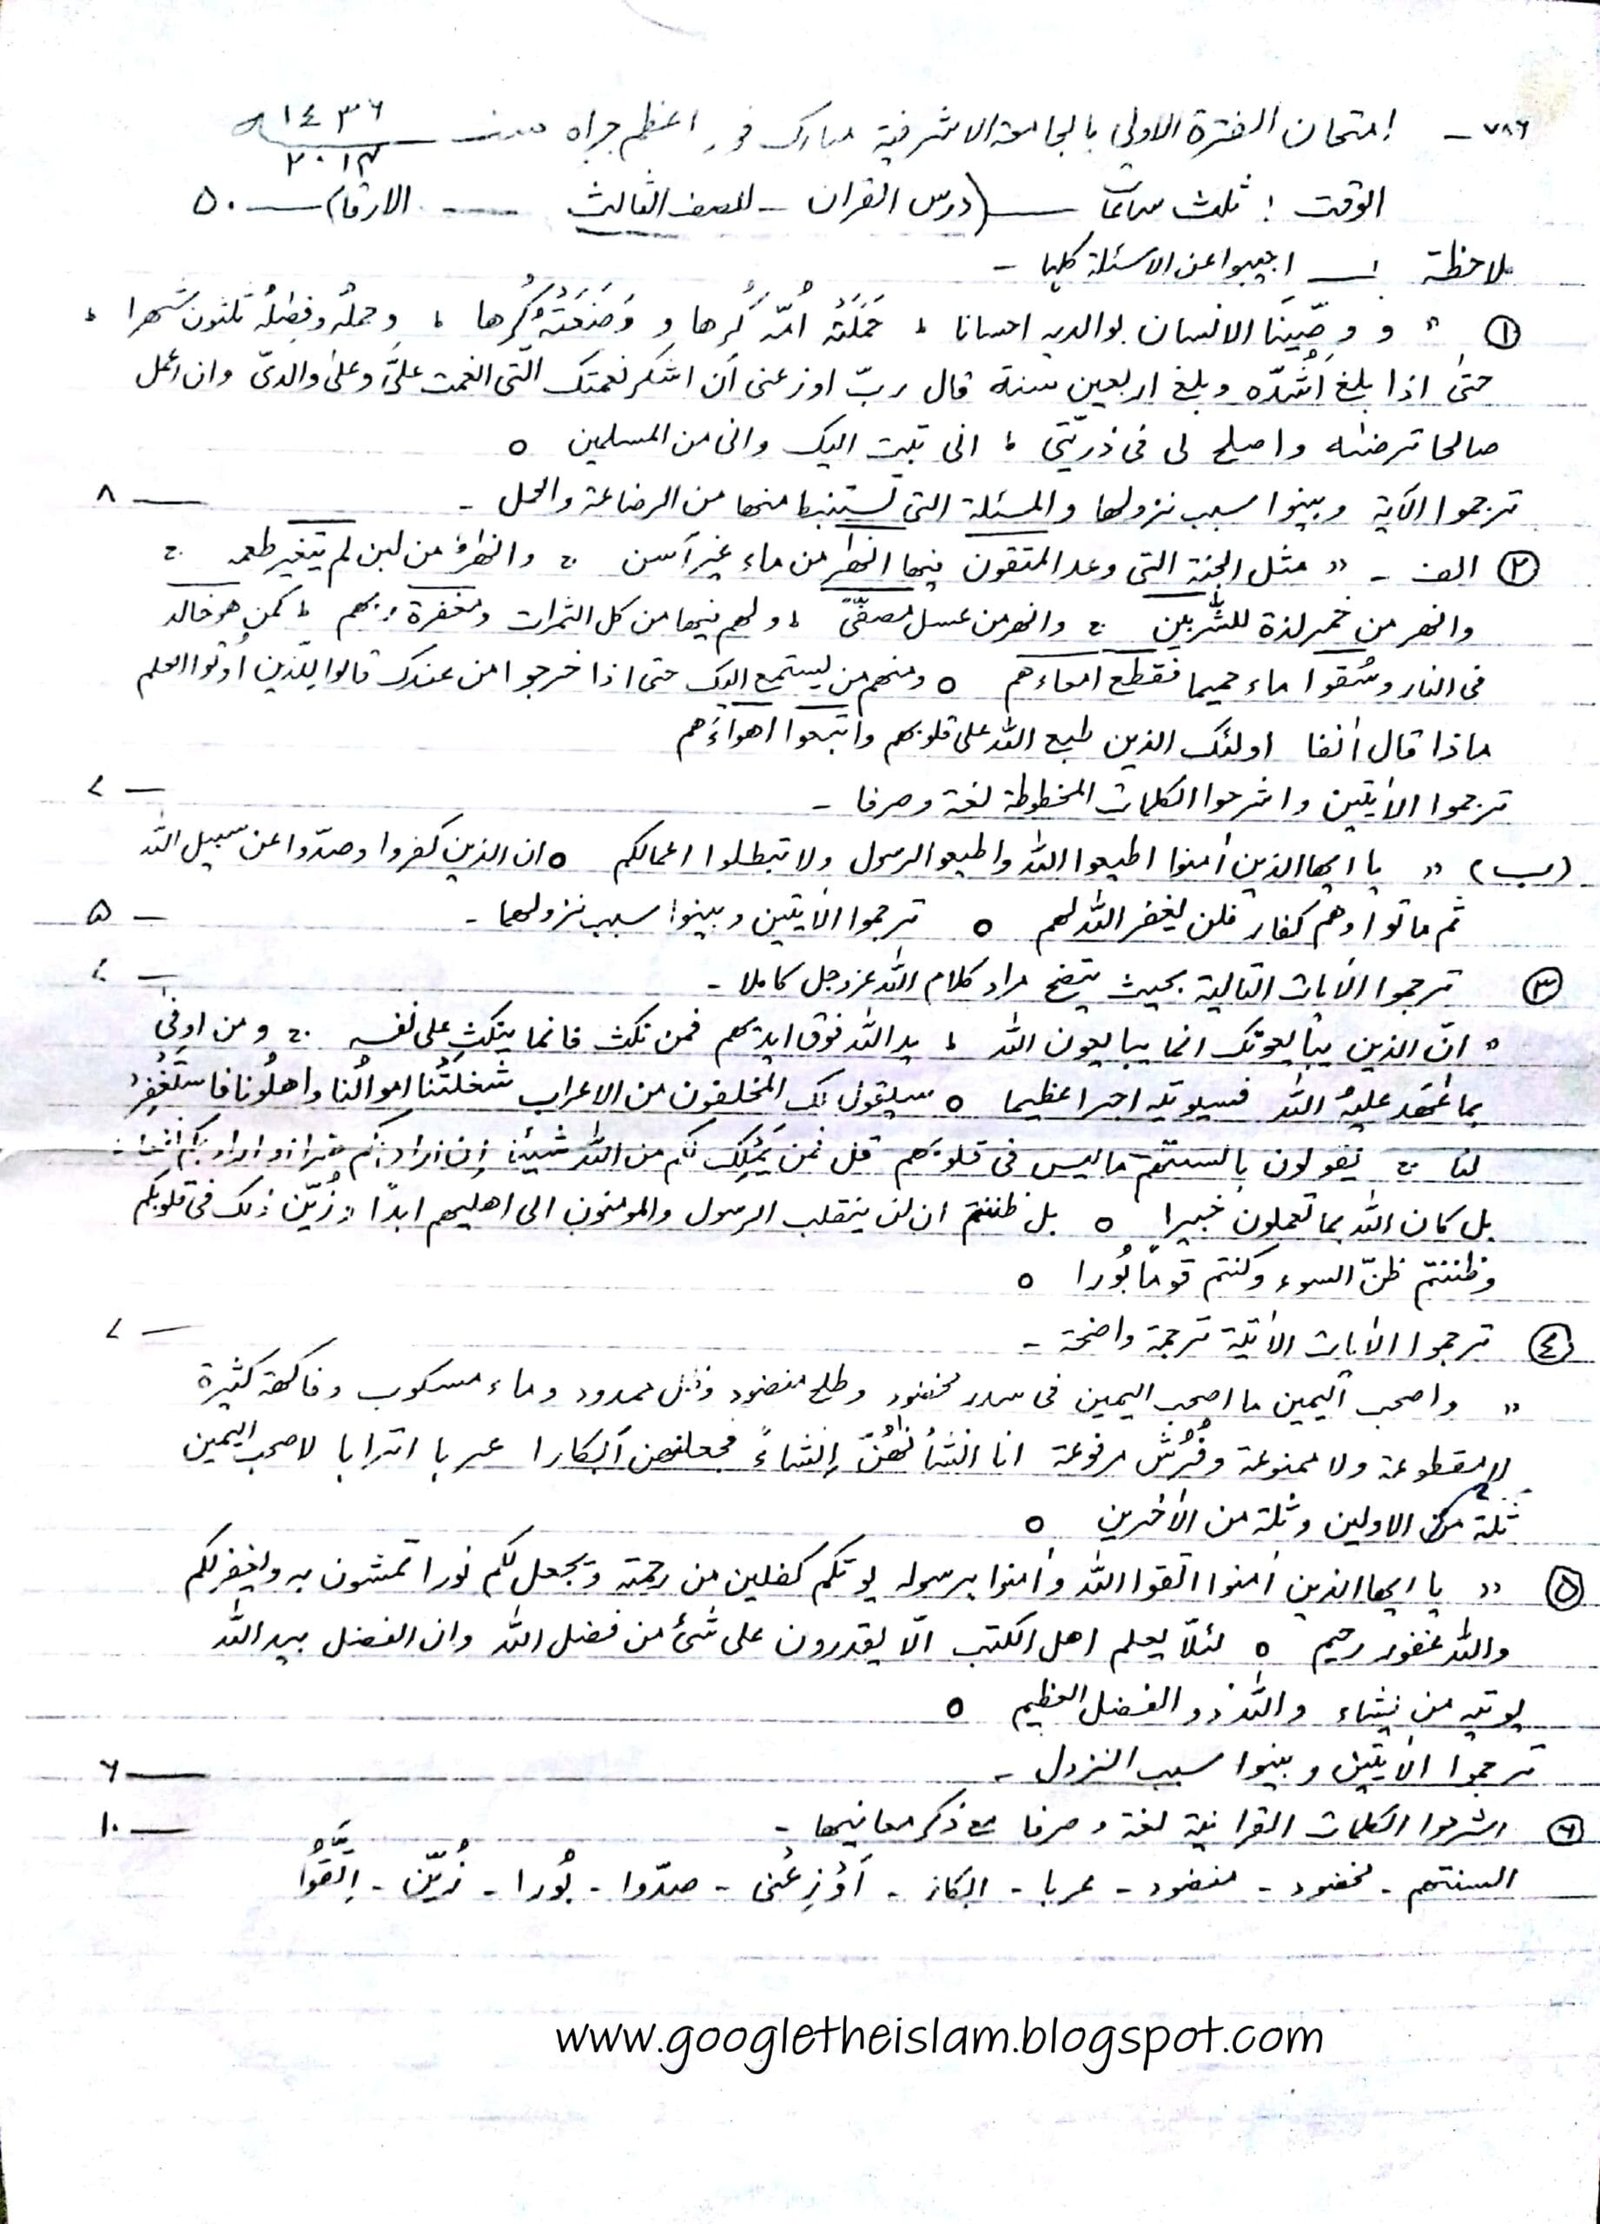 ٧٨٦ - امتحان الفترة الاولى بالجامعة الاشرفية مبارك فور اعظم جراه سنه ١٤٣٦
الوقت : ثلث ساعات — (درس القران - للصف الثالث --- الارقام — ٥٠
ملاحظة : — اجيبوا عن الاسئلة كلها -
① " و وصّينَا الانسان بوالديه احسانا ط حَمَلَتْه اُمّه كُرها و وَضَعَتْهُ كُرها ط وحملُه وفِصٰلُه ثلثون شهرا ط
حتىٰ اذا بلغ اَشُدّه وبلغ اربعين سنة قال ربّ اوزعنى اَن اشكر نعمتك الّتى انعمت علىَّ وعلىٰ والدىّ وان اعمل
صالحا ترضٰه واصلح لى فى ذريّتى ط انى تبت اليك وانى من المسلمين ○
ترجموا الآية وبينوا سبب نزولها والمسئلة التى تستنبط منها من الرضاعة والحمل - — ٨
② الف - " مثل الجنة التى وعد المتقون فيها انهٰر من ماء غير آسن ج وانهٰر من لبن لم يتغير طعمه ج
وانهٰر من خمر لذة للشّٰربين ج وانهٰر من عسل مصفّىً ط ولهم فيها من كل الثمرات ومغفرة من ربهم ط كمن هو خالد
فى النار وسُقوا ماء حميما فقطع امعاءهم ○ ومنهم من يستمع اليك حتى اذا خرجوا من عندك قالوا للذين اُوتوا العلم
ماذا قال اٰنفا اولئك الذين طبع الله على قلوبهم واتبعوا اهواءَهم
ترجموا الاٰيتين واشرحوا الكلمات المخطوطة لغة وصرفا - — ٧
(ب) " يا ايها الذين اٰمنوا اطيعوا الله واطيعوا الرسول ولا تبطلوا اعمالكم ○ ان الذين كفروا وصدّوا عن سبيل الله
ثم ماتوا وهم كفار فلن يغفر الله لهم ○ ترجموا الاٰيتين وبينوا سبب نزولهما - — ٥
③ ترجموا الاٰيات التالية بحيث يتضح مراد كلام الله عزوجل كاملا - — ٧
" انّ الذين يبايعونك انما يبايعون الله ط يد الله فوق ايديهم فمن نكث فانما ينكث على نفسه ج ومن اوفىٰ
بما عٰهد عليهُ الله فسيوتيه اجرا عظيما ○ سيقول لك المخلفون من الاعراب شغلَتْنا اموالُنا واهلُونا فاستَغْفِرْ
لنا ج يقولون بالسنتهم ما ليس فى قلوبهم قل فمن يَمْلِك لكم من الله شيئا اِن اراد بكم ضرا او اراد بكم نفعا
بل كان الله بما تعملون خبيرا ○ بل ظننتم ان لن ينقلب الرسول والمومنون الى اهليهم ابدًا وزُيّن ذلك فى قلوبكم
وظننتم ظنّ السوء وكنتم قومًا بُورا ○
④ ترجموا الاٰيات الاٰتية ترجمة واضحة - — ٧
" واصحٰب اليمين ما اصحٰب اليمين فى سدر مخضود وطلح منضود وظل ممدود وماء مسكوب وفاكهة كثيرة
لا مقطوعة ولا ممنوعة وفُرُشٍ مرفوعة انا انشأنٰهُنّ اِنشاءً فجعلنٰهن ابكارا عربا اترابا لاصحٰب اليمين
ثلة من الاولين وثلة من الاٰخرين ○
⑤ " يا ايها الذين اٰمنوا اتقوا الله واٰمنوا برسوله يوتكم كفلين من رحمته ويجعل لكم نورا تمشون به ويغفر لكم
والله غفور رحيم ○ لئلّا يعلم اهل الكتٰب الّا يقدرون على شئ من فضل الله وان الفضل بيد الله
يوتيه من يشاء والله ذو الفضل العظيم ○
ترجموا الاٰيتين وبينوا سبب النزول - — ٦
⑥ اشرحوا الكلمات القرانية لغة وصرفا مع ذكر معانيها - — ١٠
السنتهم - مخضود - منضود - عربا - ابكار - اَوْزِعْنى - صدّوا - بُورا - زُيّن - اِتَّقُوْا
www.googletheislam.blogspot.com